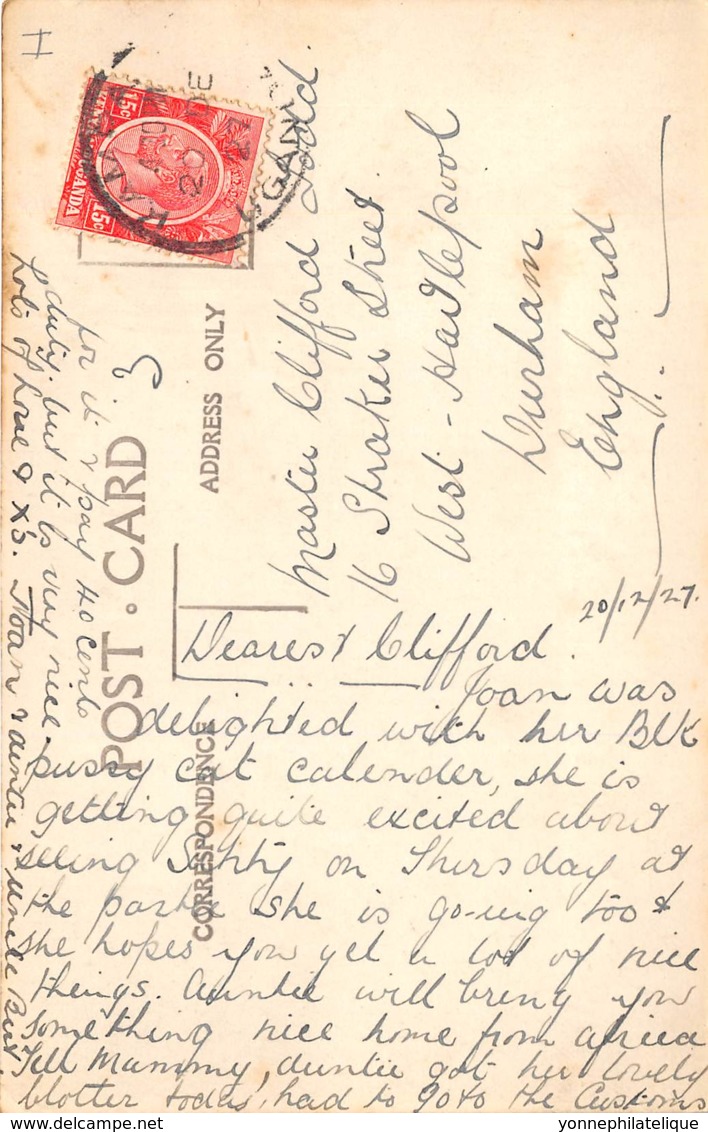 II
15c
UGANDA
15c
KAMPALA
20 DE
27
UGANDA
POST · CARD
ADDRESS ONLY
CORRESPONDENCE
Master Clifford Todd.
16 Straker Street
West-Hartlepool
Durham
England.
20/12/27.
Dearest Clifford.
Joan was
delighted with her Blk
pussy cat calender, she is
getting quite excited about
seeing Santy on Thirsday at
the partie she is go-ing too &
she hopes you get a lot of nice
things. Auntie will bring you
something nice home from africa
Tell Mammy, auntie got her lovely
blotter today, had to go to the Customs
for it & pay 40 cents
duty, but it is very nice.
Lots of love & X's. Joan & auntie & uncle Bert.
yonnephilatelique@delcampe.net